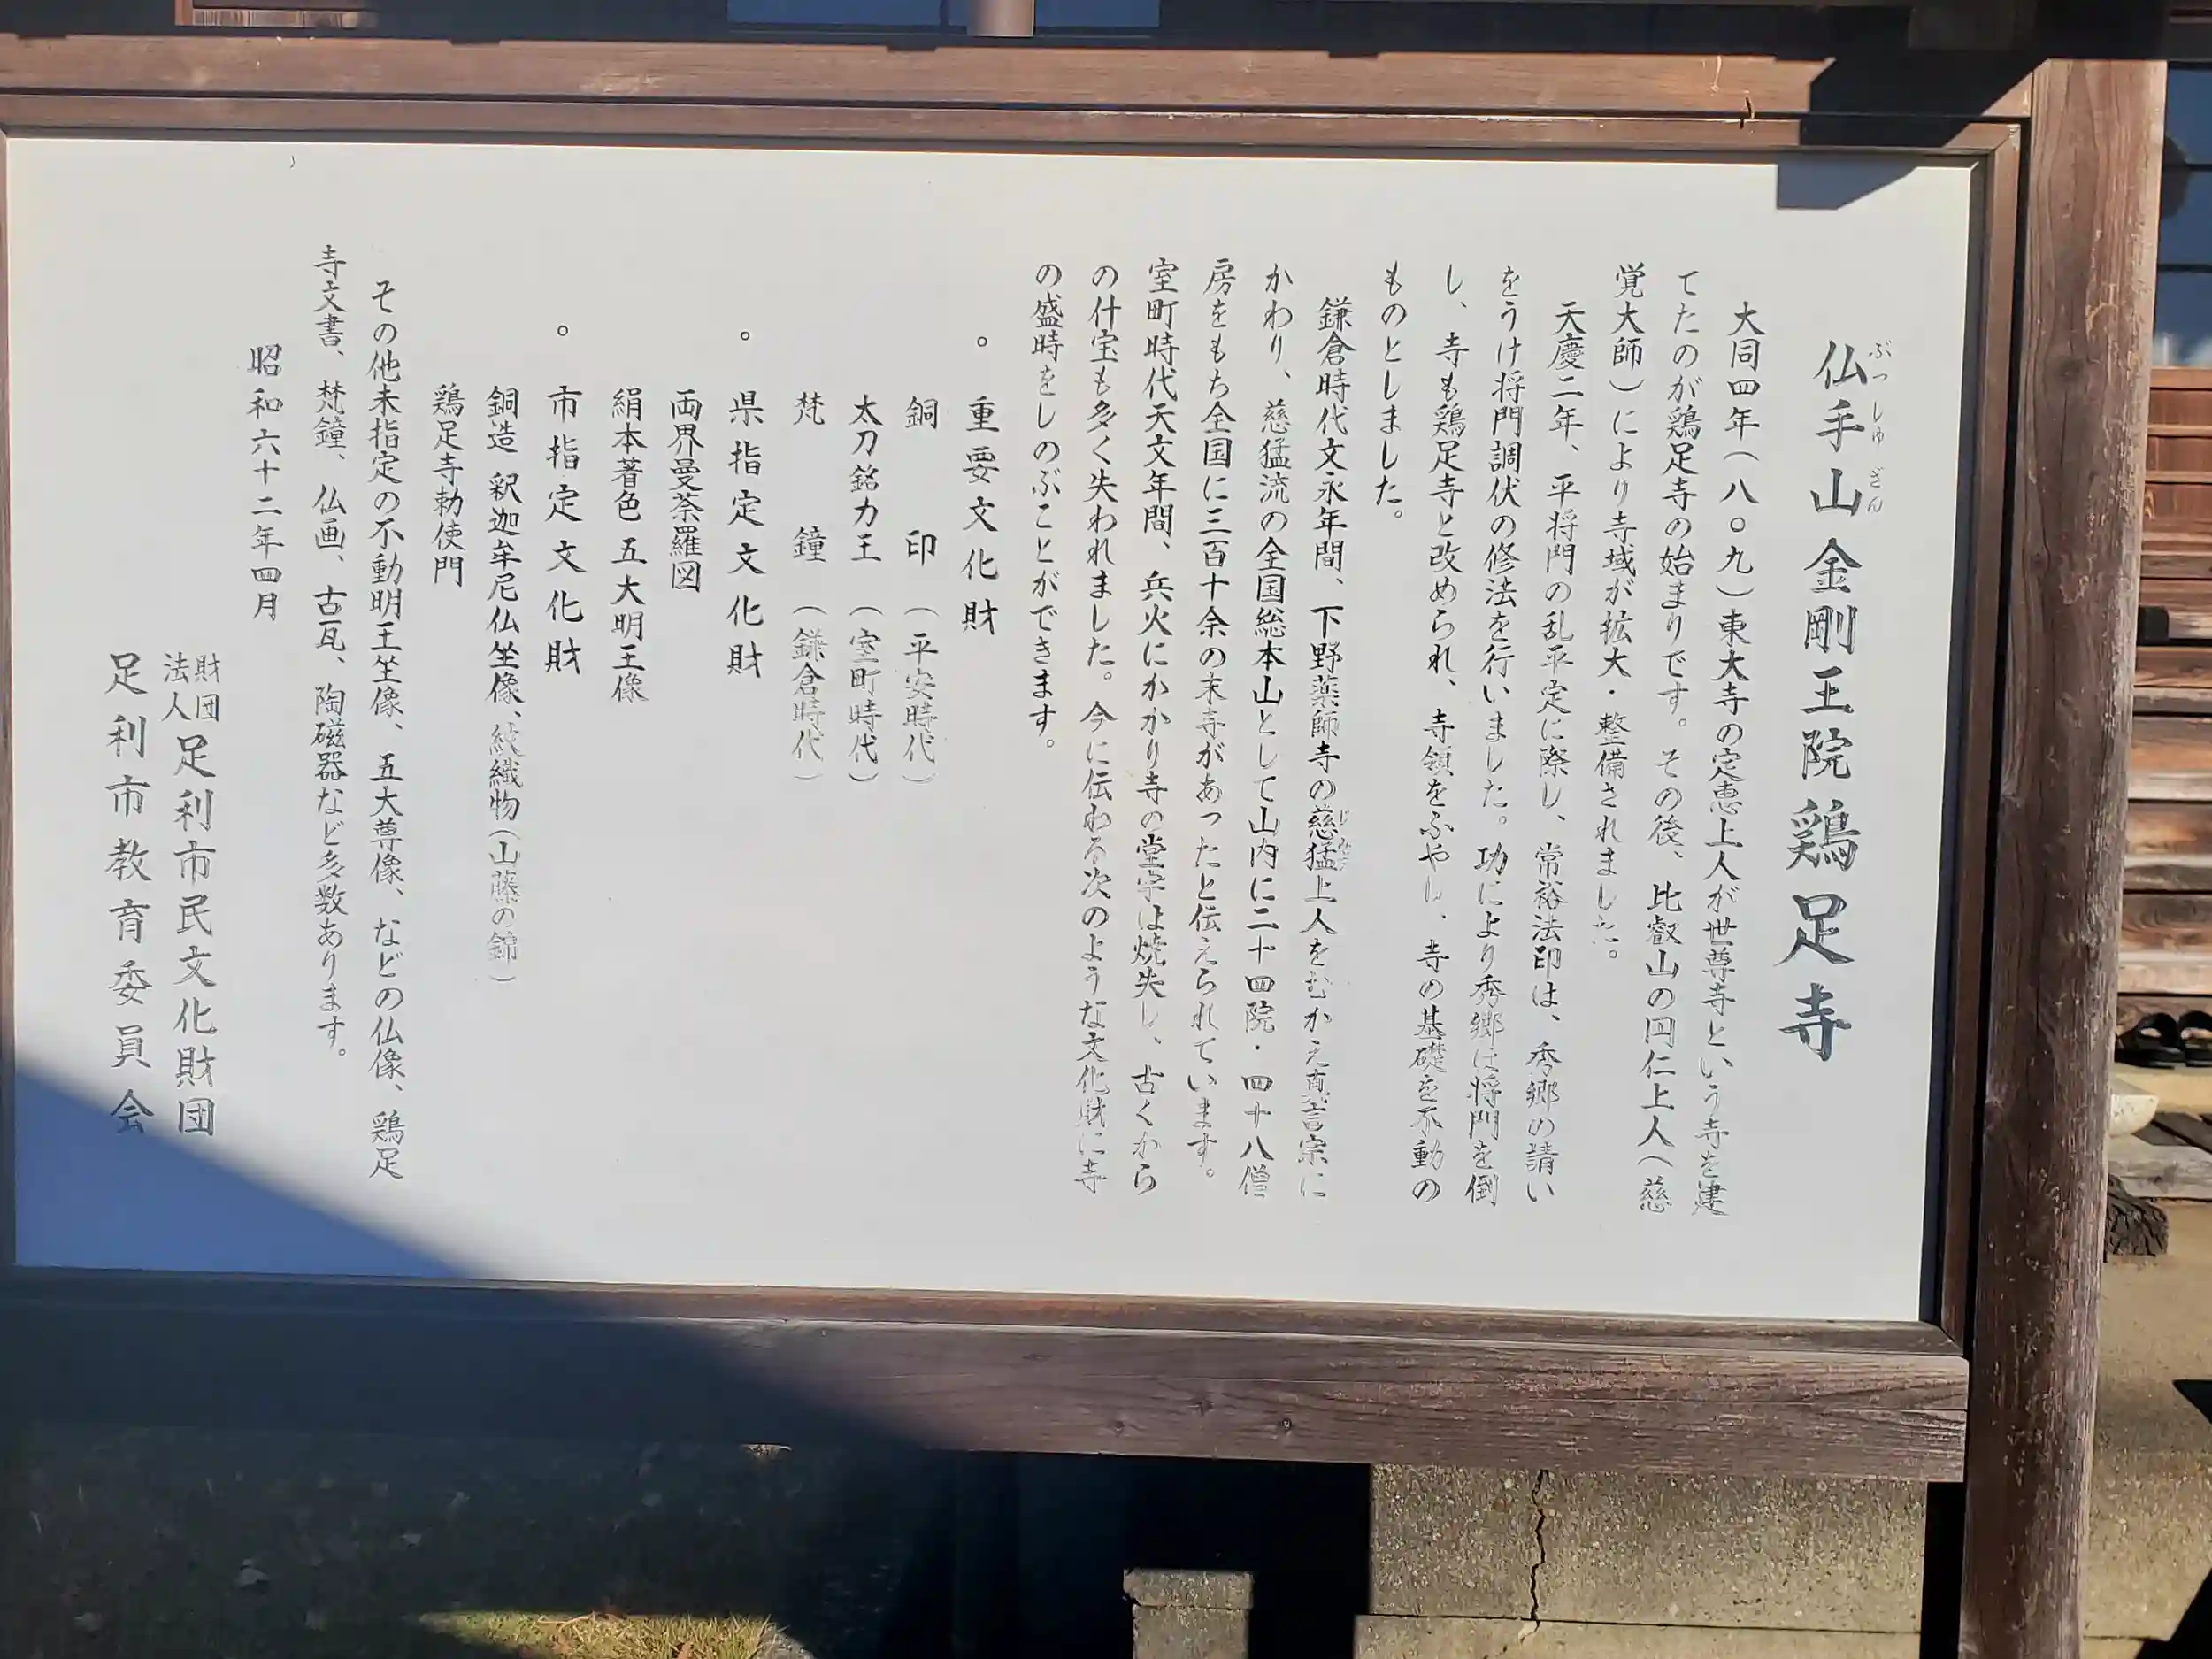 仏手山金剛王院鶏足寺
ぶっしゅぎん
大同四年（八〇九）東大寺の定恵上人が世尊寺という寺を建
てたのが鶏足寺の始まりです。その後、比叡山の円仁上人（慈
覚大師）により寺域が拡大・整備されました。
天慶二年、平将門の乱平定に際し、常裕法印は、秀郷の請い
をうけ将門調伏の修法を行いました。功により秀郷は将門を倒
し、寺も鶏足寺と改められ、寺領をふやし、寺の基礎を不動の
ものとしました。
鎌倉時代文永年間、下野薬師寺の慈猛上人をむかえ真言宗に
かわり、慈猛流の全国総本山として山内に二十四院・四十八僧
房をもち全国に三百十余の末寺があったと伝えられています。
室町時代天文年間、兵火にかかり寺の堂宇は焼失し、古くから
の什宝も多く失われました。今に伝わる次のような文化財に寺
の盛時をしのぶことができます。
。重要文化財
銅印（平安時代）
太刀銘力王（室町時代）
梵鐘（鎌倉時代）
。県指定文化財
両界曼荼羅図
絹本著色 五大明王像
。市指定文化財
銅造 釈迦牟尼仏坐像、綾織物（山藤の錦）
鶏足寺勅使門
その他未指定の不動明王坐像、五大尊像、などの仏像、鶏足
寺文書、梵鐘、仏画、古瓦、陶磁器など多数あります。
昭和六十二年四月
財団法人足利市民文化財団
足利市教育委員会